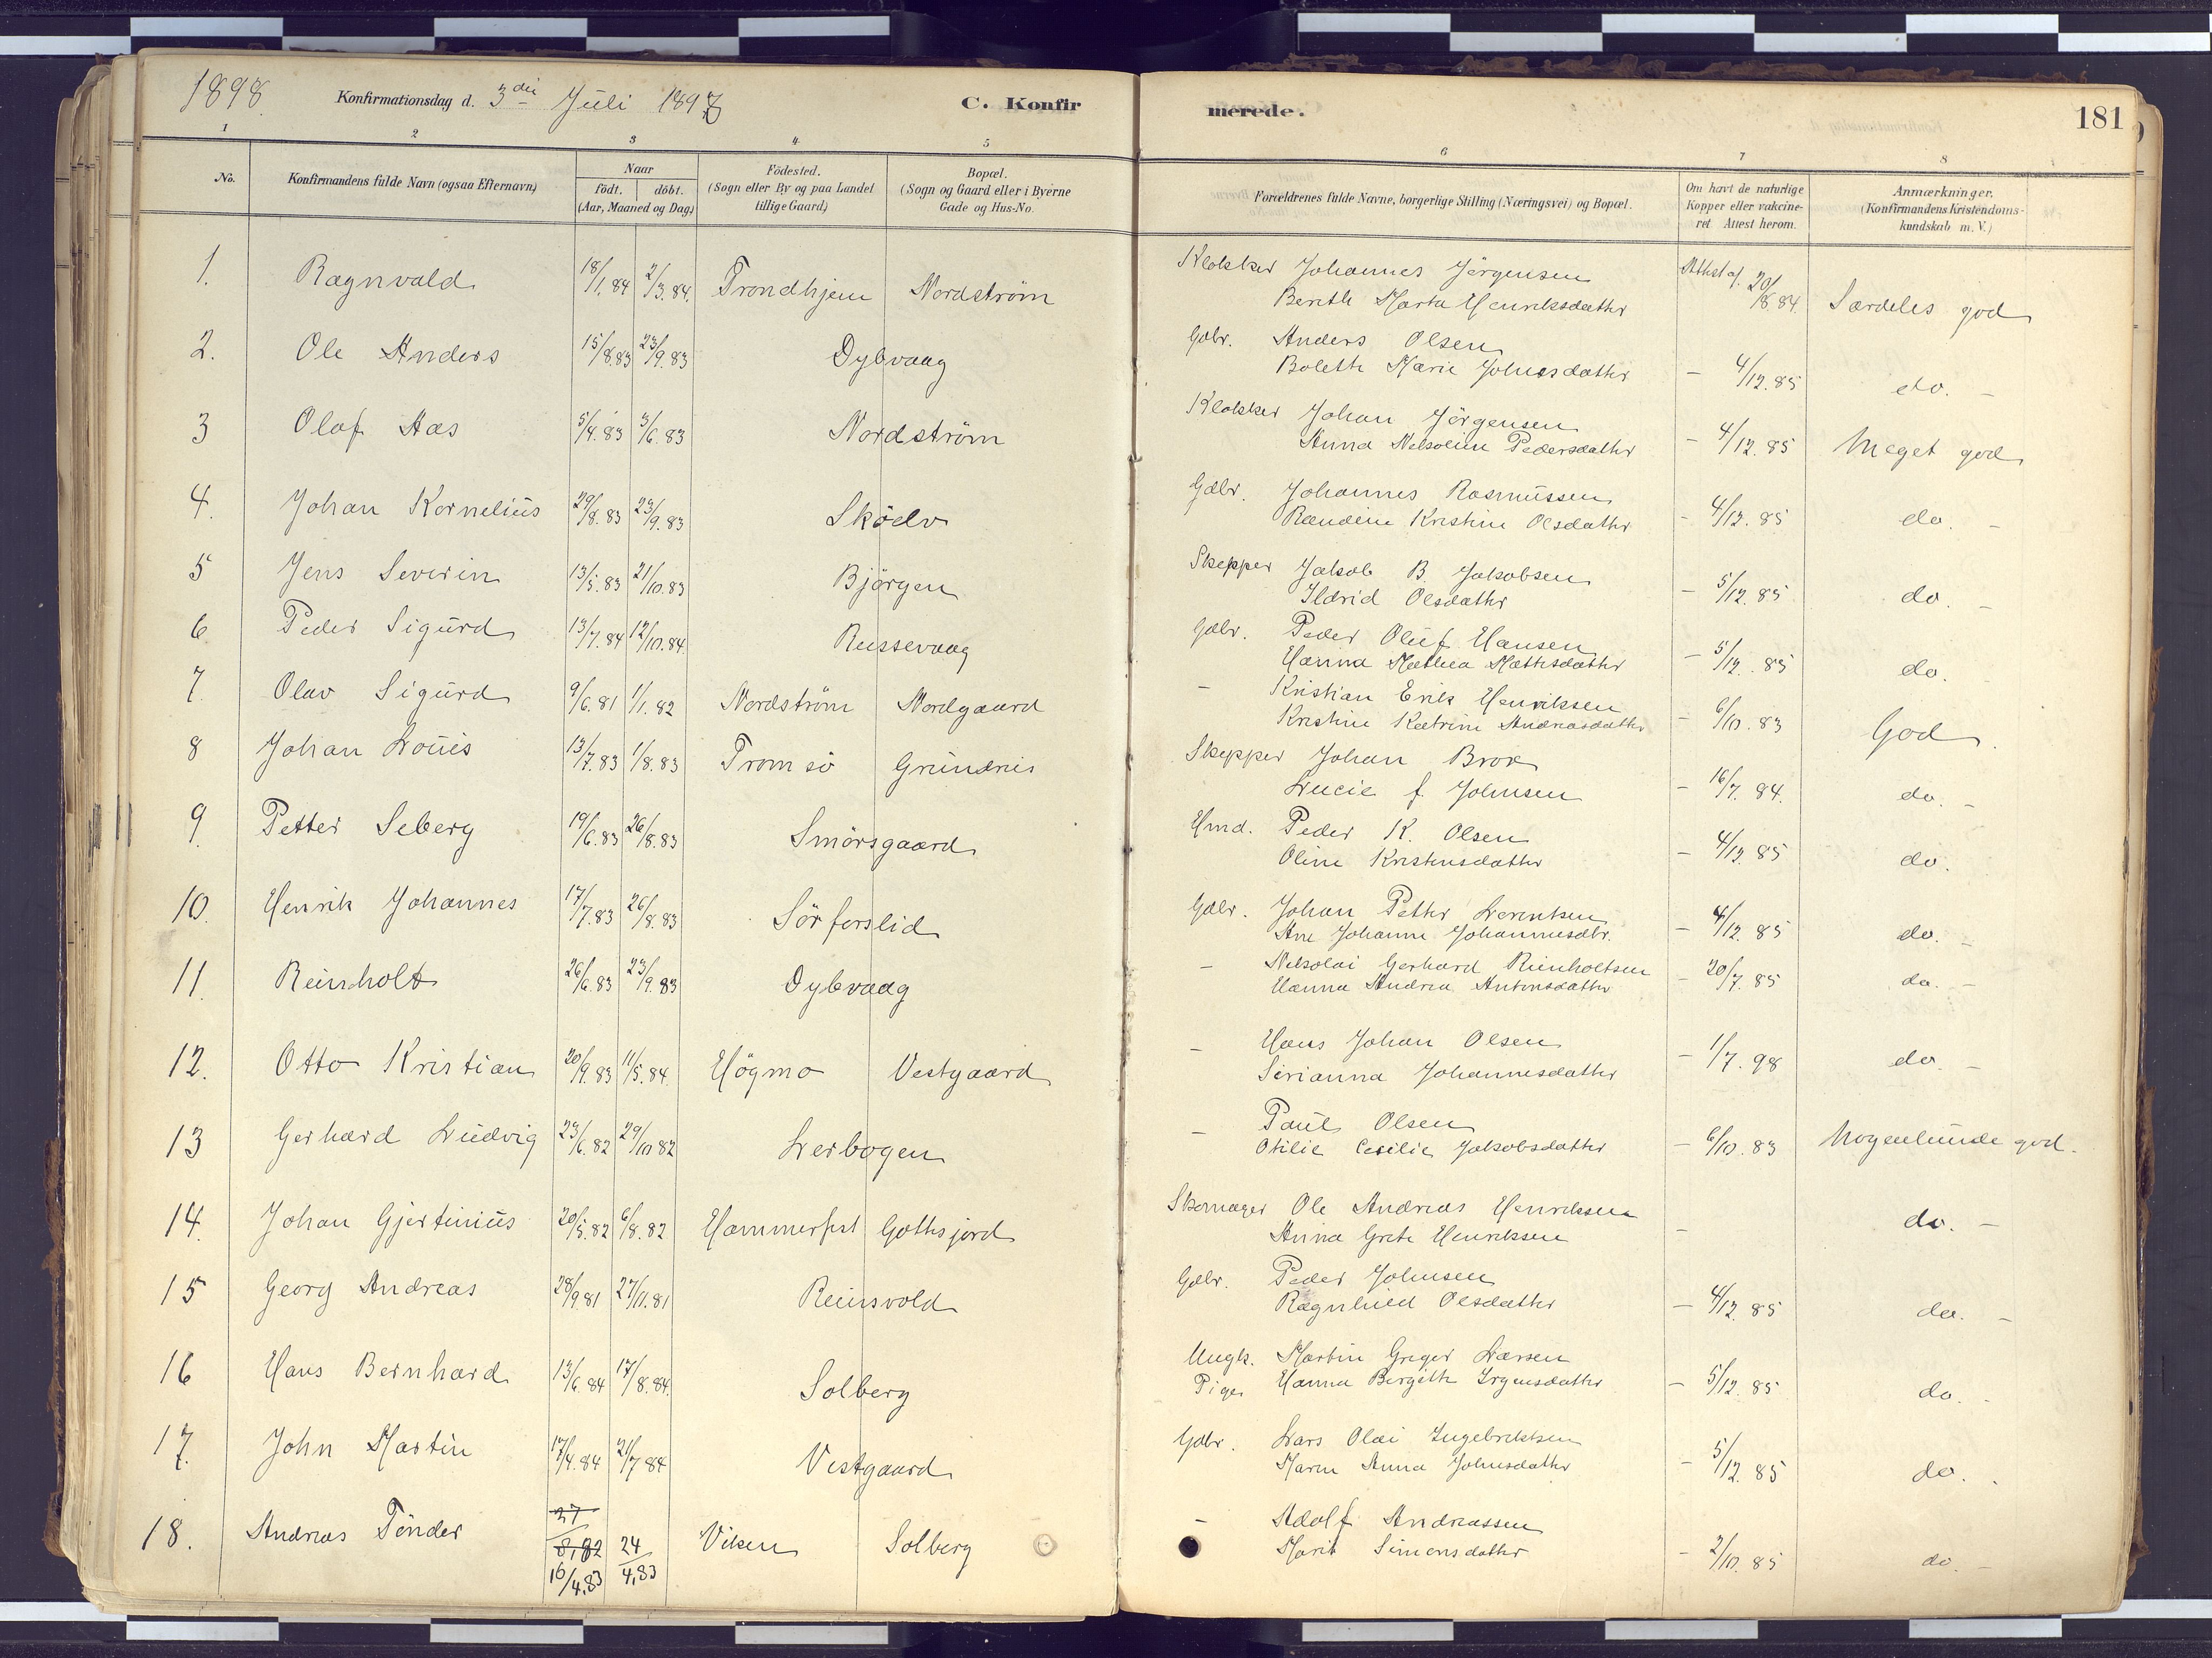 1898. Konfirmationsdag d. 3die Juli 1898 C. Konfirmerede. 181
1 2 3 4 5 6 7 8
No. Konfirmandens fulde Navn (ogsaa Efternavn) Naar födt. döbt. (Aar, Maaned og Dag) Födested. (Sogn eller By og paa Landet tillige Gaard) Bopæl. (Sogn og Gaard eller i Byerne Gade og Hus-No. Forældrenes fulde Navne, borgerlige Stilling (Næringsvei) og Bopæl. Om havt de naturlige Kopper eller vakcineret Attest herom. Anmærkninger. (Konfirmandens Kristendomskundskab m. V.)
1. Ragnvald 18/1.84 2/3.84. Trondhjem Nordström Klokker Johannes Jörgensen Attest af 20/8.84. Særdeles god
Bereth Marta Henriksdatter
2. Ole Anders 15/8.83 23/9.83 Dybvaag Gdbr. Anders Olsen
Boleth Marie Johnsdatter - 4/12.85 do. -
3 Olaf Aas 5/4.83 3/6.83 Nordström Klokker Johan Jörgensen
Anna Nikoline Pedersdatter - 4/12.85 Meget god
4. Johan Kornelius 29/8.83 23/9.83 Sködv Gdbr. Johannes Rasmussen
Randine Kristine Olsdatter - 4/12.85 do. -
5 Jens Severin 13/5.83 21/10.83 Björgen Skipper Jakob B. Jakobsen
Ildrid Olsdatter - 5/12.85 do. -
6 Peder Sigurd 13/7.84 12/10.84. Russevaag Gdbr. Peder Oluf Hansen
Hanna Mathea Mathisdatter - 5/12.85 do. -
7. Olav Sigurd 9/6.81 1/1.82 Nordström Nordgaard - Kristian Erik Henriksen
Kristine Katrine Andreasdatter - 6/10.83 God.
8 Johan Louis 13/7.83 1/8.83 Tromsö Grundnes Skipper Johan Brox
Lucie f. Johnsen - 16/7.84. do. -
9. Petter Seberg 19/6.83 26/8.83 Smörsgaard Hmd. Peder K. Olsen
Oline Kristensdatter - 4/12.85 do.
10. Henrik Johannes 17/7.83 26/8.83 Sörforslid Gdbr. Johan Petter Lorentsen
Ane Johanne Johannesdtr. - 4/12.85 do. -
11. Reinholt 26/6.83 23/9.83 Dybvaag - Nikolai Gerhard Reinholtsen
Hanna Andrea Antonsdatter - 20/7.85 do. -
12. Otto Kristian 20/9.83 11/5.84. Högmo Vestgaard - Hans Johan Olsen
Sirianna Johannesdatter - 1/7.98 do. -
13 Gerhard Ludvig 23/6.82 29/10.82 Leirbogen - Paul Olsen
Otilie Cecilie Jakobsdatter - 6/10.83 Nogenlunde god.
14. Johan Gjertinius 20/5.82 6/8.82 Hammerfest Gottesjord Skomager Ole Andreas Henriksen
Anna Grete Henriksen - do. -
15 Georg Andreas 28/9.81 27/11.81 Reinsvold Gdbr. Peder Johnsen
Ragnhild Olsdatter - 4/12.85 do. -
16 Hans Bernhard 13/6.84 17/8.84. Solberg Ungk. Martin Greger Larsen
Pige Hanna Bergithe Yrgensdatter - 5/12.85 do. -
17. John Martin 17/4.84 21/7.84 Vestgaard Gdbr. Lars Olai Ingebriktsen
Maren Anna Johnsdatter - 5/12.85 do. -
18. Andreas Tönder 27/8.82 16/4.83 24/4.83 Viken Solberg - Adolf Andreassen
Marit Simonsdatter - 2/10.85 do. -